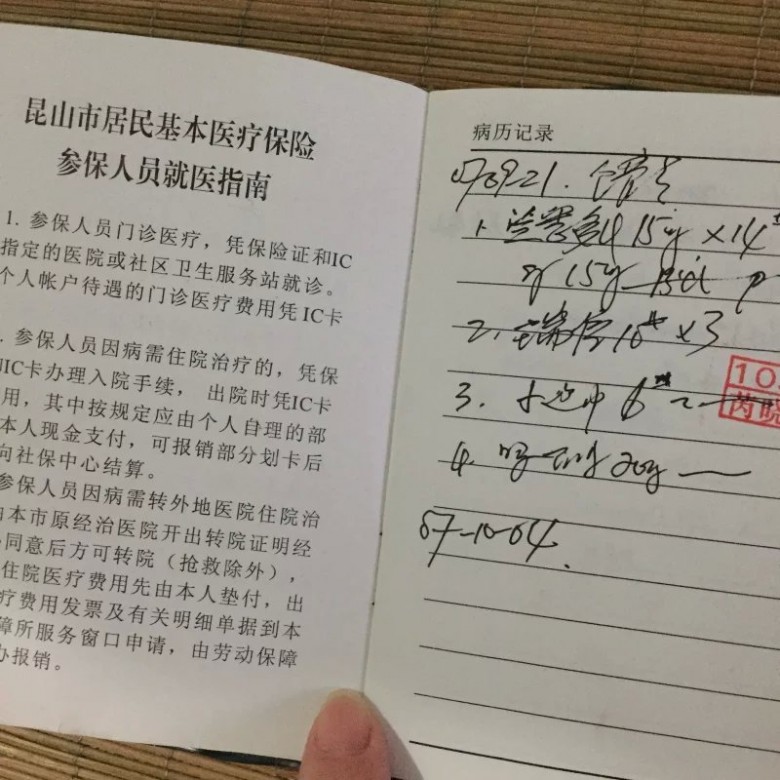 昆山市居民基本医疗保险
参保人员就医指南
1. 参保人员门诊医疗，凭保险证和IC
指定的医院或社区卫生服务站就诊。
个人帐户待遇的门诊医疗费用凭IC卡
. 参保人员因病需住院治疗的，凭保
IC卡办理入院手续， 出院时凭IC卡
用，其中按规定应由个人自理的部
本人现金支付，可报销部分划卡后
向社保中心结算。
参保人员因病需转外地医院住院治
由本市原经治医院开出转院证明经
同意后方可转院（抢救除外），
住院医疗费用先由本人垫付，出
疗费用发票及有关明细单据到本
障所服务窗口申请，由劳动保障
办报销。
病历记录
07-09-21.
1. 15g × 14
15g Bid
2. 10 × 3
3. 6
4. 20g
07-10-04.
10
芮晓